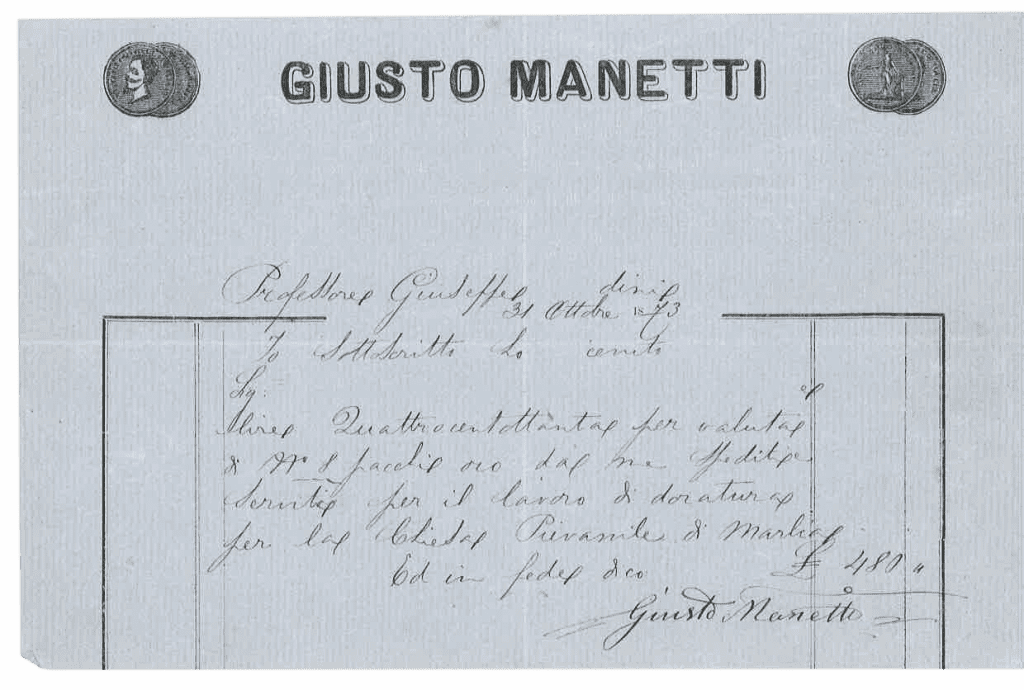 GIUSTO MANETTI
Professore Giuseppe
31 Ottobre 1873
Io Sottoscritto ho
Lire Quattrocentottanta per valuta
di N° 8 pacchi oro da me spediti e
serviti per il lavoro di doratura
per la Chiesa Pievanile di Marlia
£ 480 "
Ed in fede dico
Giusto Manetti